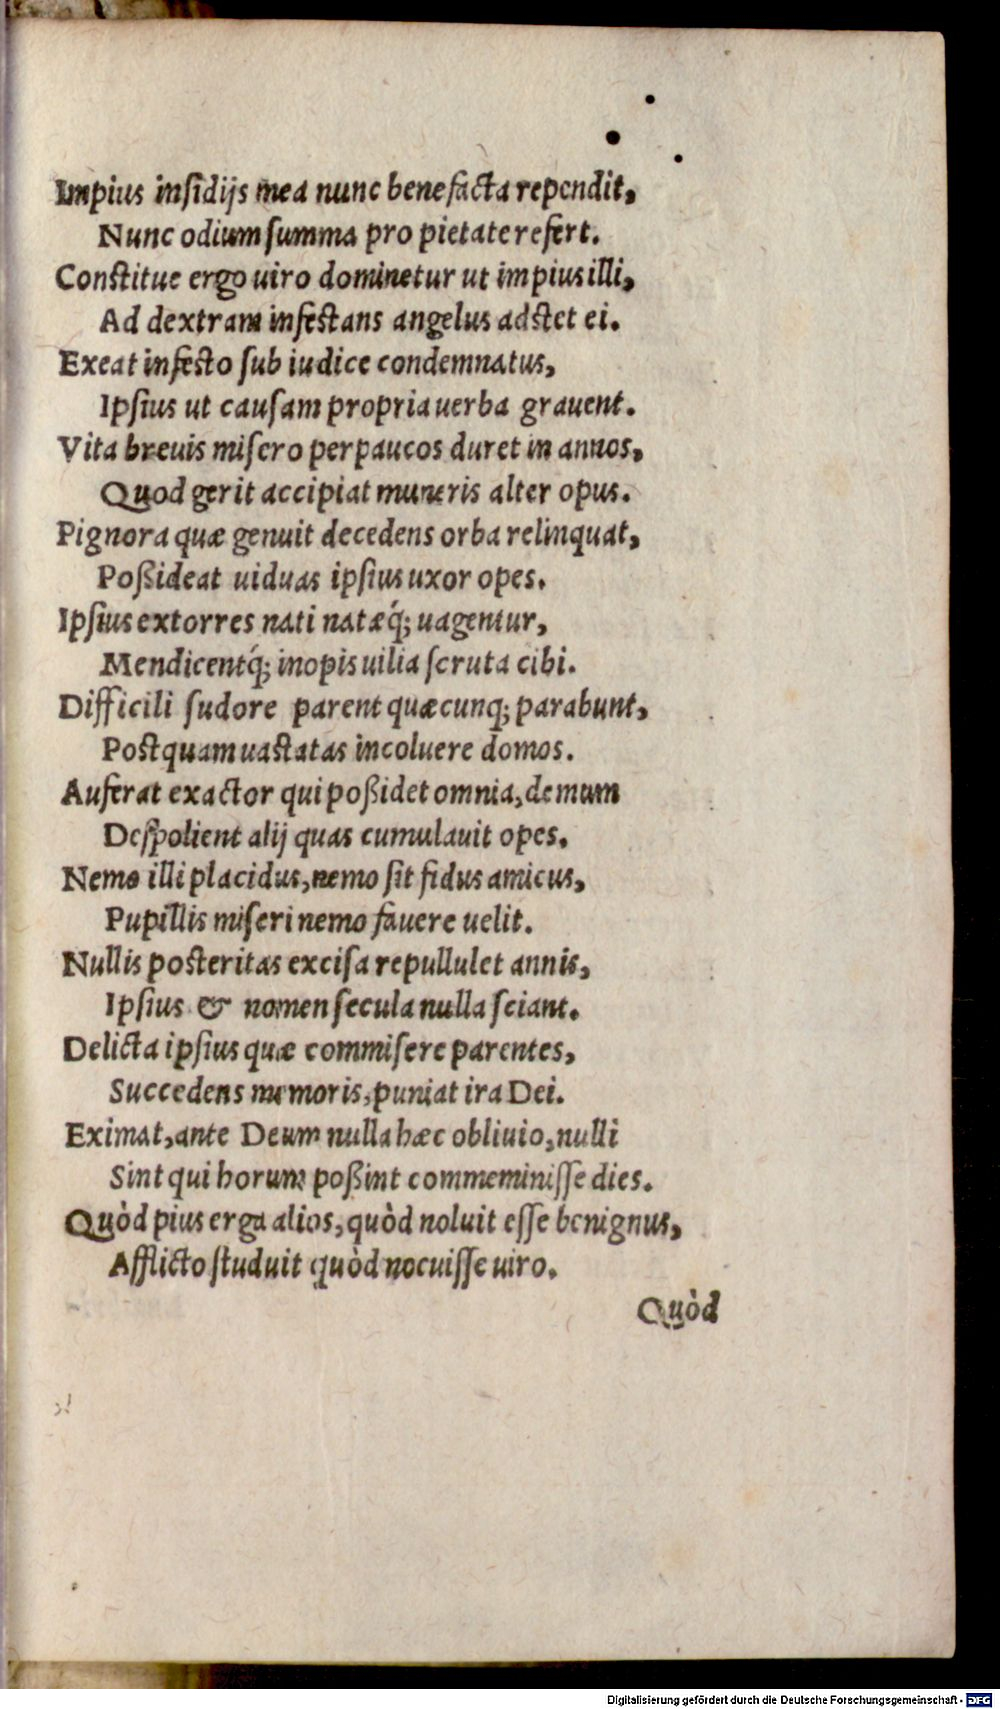 Impius insidijs mea nunc benefacta rependit,
Nunc odium summa pro pietate refert.
Constitue ergo uiro dominetur ut impius illi,
Ad dextram infestans angelus adstet ei.
Exeat infesto sub iudice condemnatus,
Ipsius ut causam propria uerba grauent.
Vita breuis misero perpaucos duret in annos,
Quod gerit accipiat muneris alter opus.
Pignora quæ genuit decedens orba relinquat,
Poßideat uiduas ipsius uxor opes.
Ipsius extorres nati natæq́; uagentur,
Mendicentq́; inopis uilia scruta cibi.
Difficili sudore parent quæcunq; parabunt,
Postquam uastatas incoluere domos.
Auferat exactor qui poßidet omnia, demum
Despolient alij quas cumulauit opes.
Nemo illi placidus, nemo sit fidus amicus,
Pupillis miseri nemo fauere uelit.
Nullis posteritas excisa repullulet annis,
Ipsius & nomen secula nulla sciant.
Delicta ipsius quæ commisere parentes,
Succedens memoris, puniat ira Dei.
Eximat, ante Deum nulla hæc obliuio, nulli
Sint qui horum poßint commeminisse dies.
Quòd pius erga alios, quòd noluit esse benignus,
Afflicto studuit quòd nocuisse uiro.
Quòd
Digitalisierung gefördert durch die Deutsche Forschungsgemeinschaft - DFG